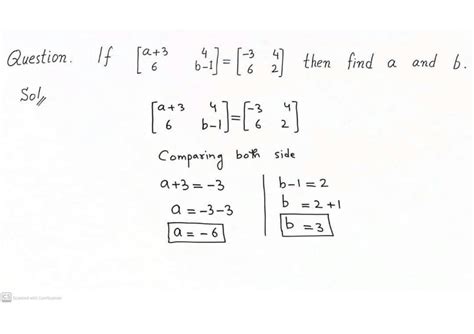 Question. If [a+3 4 = [-3 4 then find a and b.
6 b-1] 6 2]
Sol,,
[a+3 4 = [-3 4
6 b-1] 6 2]
Comparing both side
a+3 = -3
a = -3-3
a = -6
b-1 = 2
b = 2+1
b = 3
CS Scanned with CamScanner